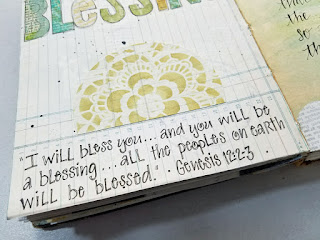 BLESSIN
"I will bless you... and you will be
a blessing.... all the peoples on earth
will be blessed." · Genesis 12:2-3 ·
the
so
th